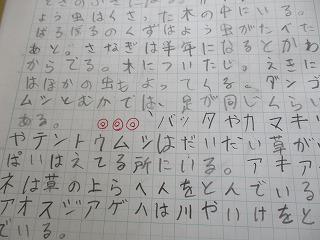 ょう虫はくさった木の中にいる。
はるぼろのくずはよう虫がたべた
あと。さなぎは半年になるとかわ
からでる。木についたじ。えきに
はほかの虫もよってくる。ダンゴ
ムシとむかでは、足が同じくらい
ある。◎◎◎ バッタやカマキリ
やテントウムシはだいたい草がい
ぱいはえてる所にいる。アキア
ネは草の上らへんをとんでいる
アオスジアゲハは川やいけをと
でいる。